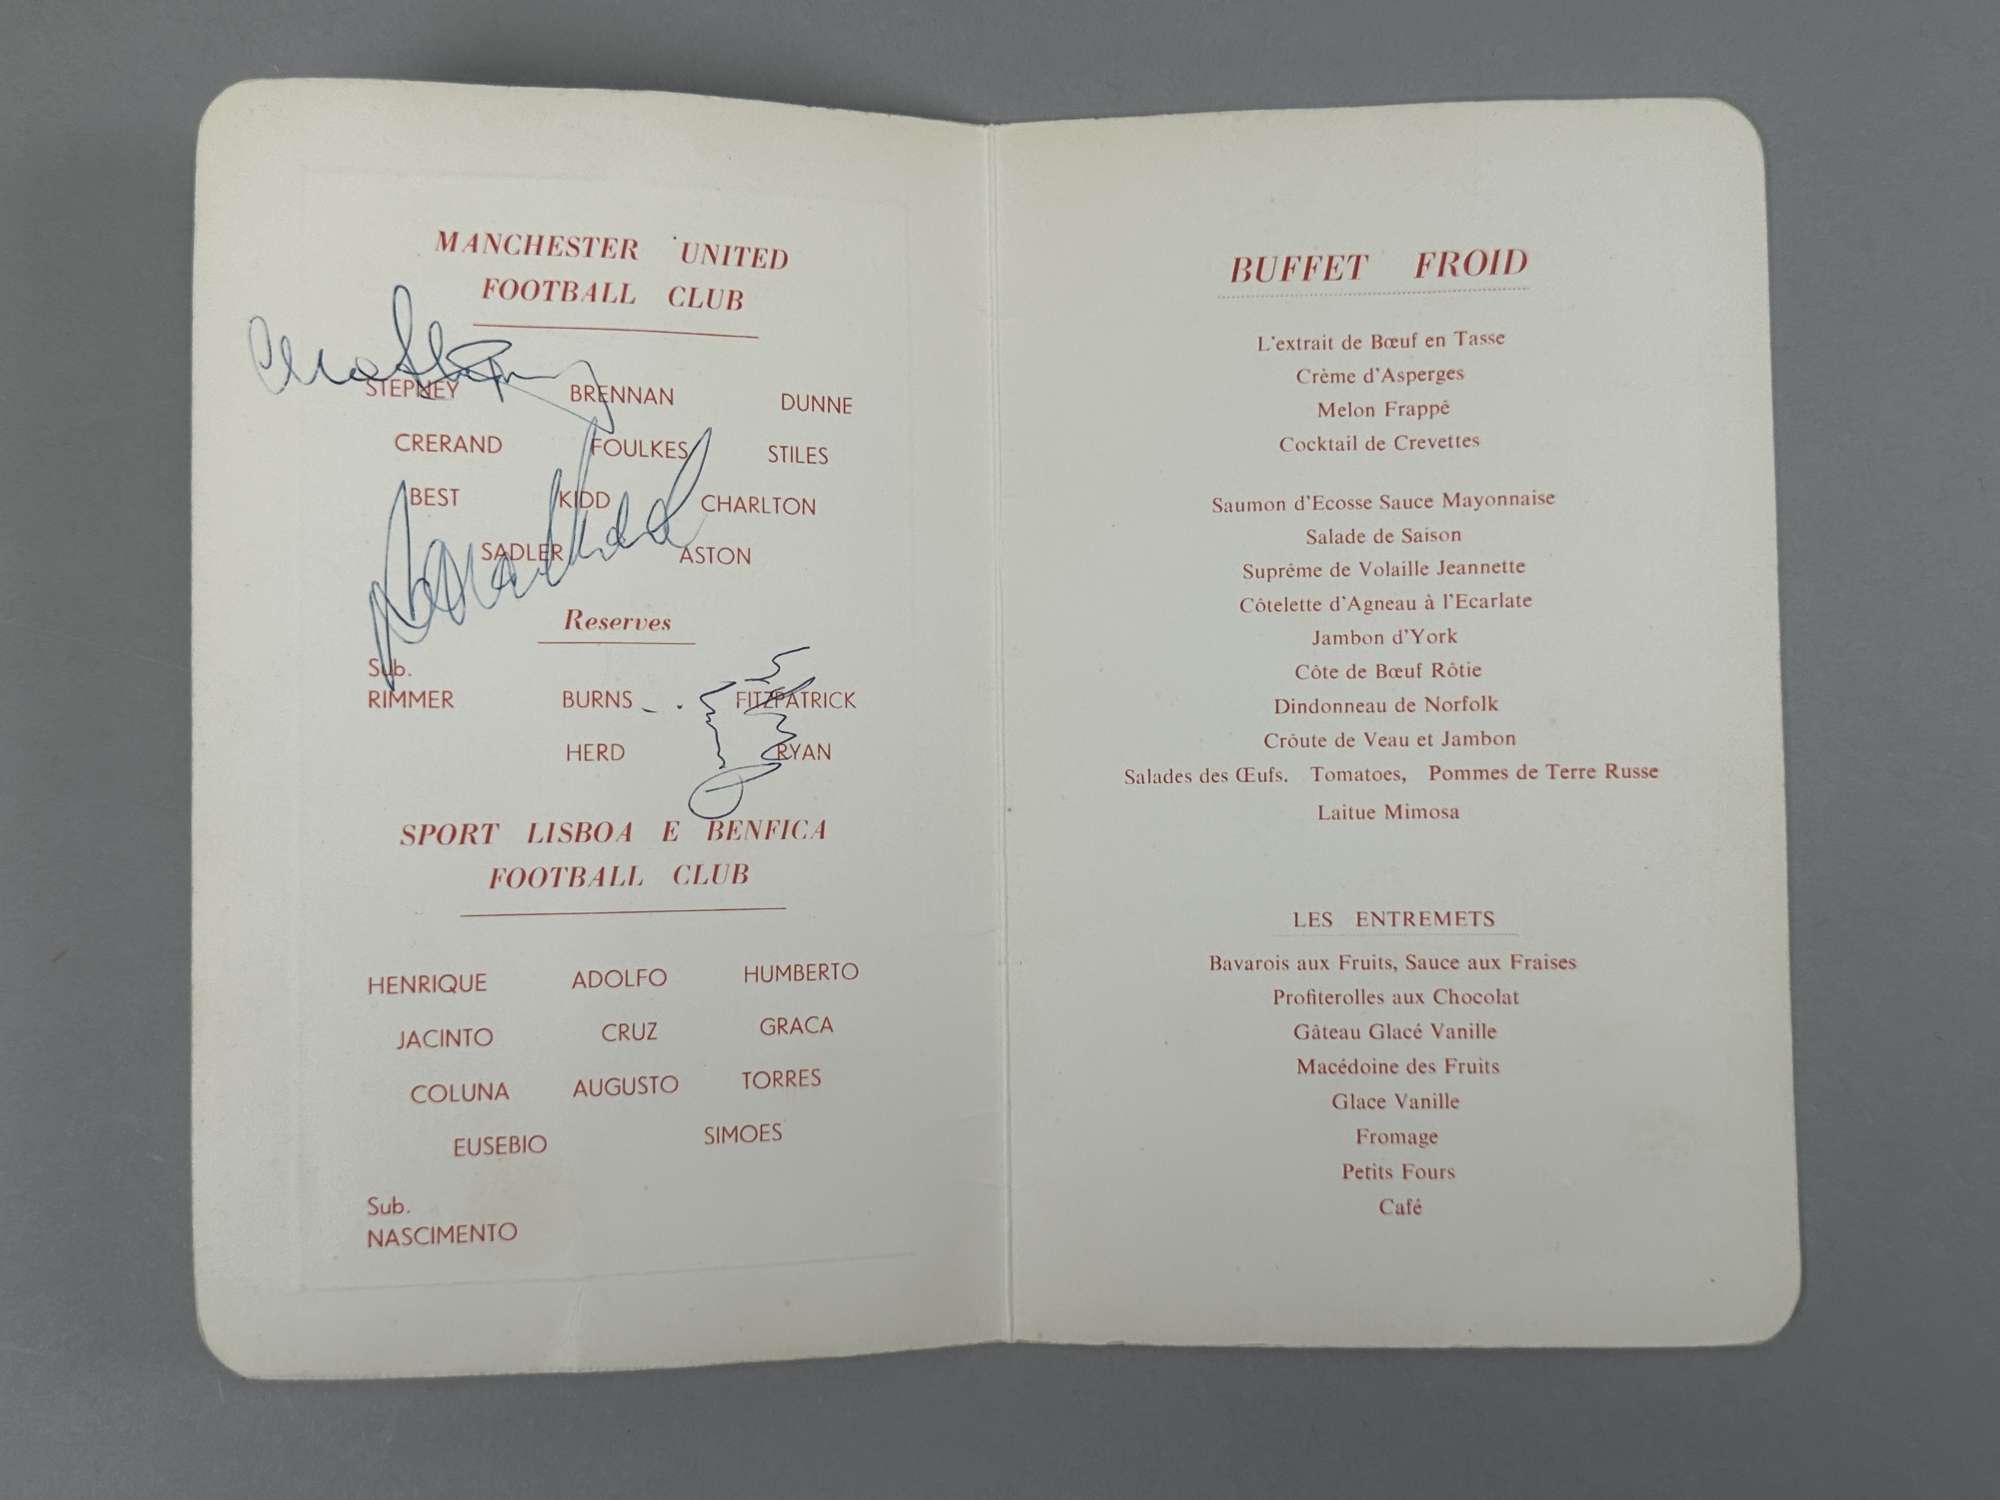 MANCHESTER UNITED
FOOTBALL CLUB
STEPNEY BRENNAN DUNNE
CRERAND FOULKES STILES
BEST KIDD CHARLTON
SADLER ASTON
Reserves
Sub.
RIMMER BURNS FITZPATRICK
HERD RYAN
SPORT LISBOA E BENFICA
FOOTBALL CLUB
HENRIQUE ADOLFO HUMBERTO
JACINTO CRUZ GRACA
COLUNA AUGUSTO TORRES
EUSEBIO SIMOES
Sub.
NASCIMENTO
BUFFET FROID
L'extrait de Bœuf en Tasse
Crème d'Asperges
Melon Frappé
Cocktail de Crevettes
Saumon d'Ecosse Sauce Mayonnaise
Salade de Saison
Suprême de Volaille Jeannette
Côtelette d'Agneau à l'Ecarlate
Jambon d'York
Côte de Bœuf Rôtie
Dindonneau de Norfolk
Croûte de Veau et Jambon
Salades des Œufs. Tomatoes, Pommes de Terre Russe
Laitue Mimosa
LES ENTREMETS
Bavarois aux Fruits, Sauce aux Fraises
Profiterolles aux Chocolat
Gâteau Glacé Vanille
Macédoine des Fruits
Glace Vanille
Fromage
Petits Fours
Café